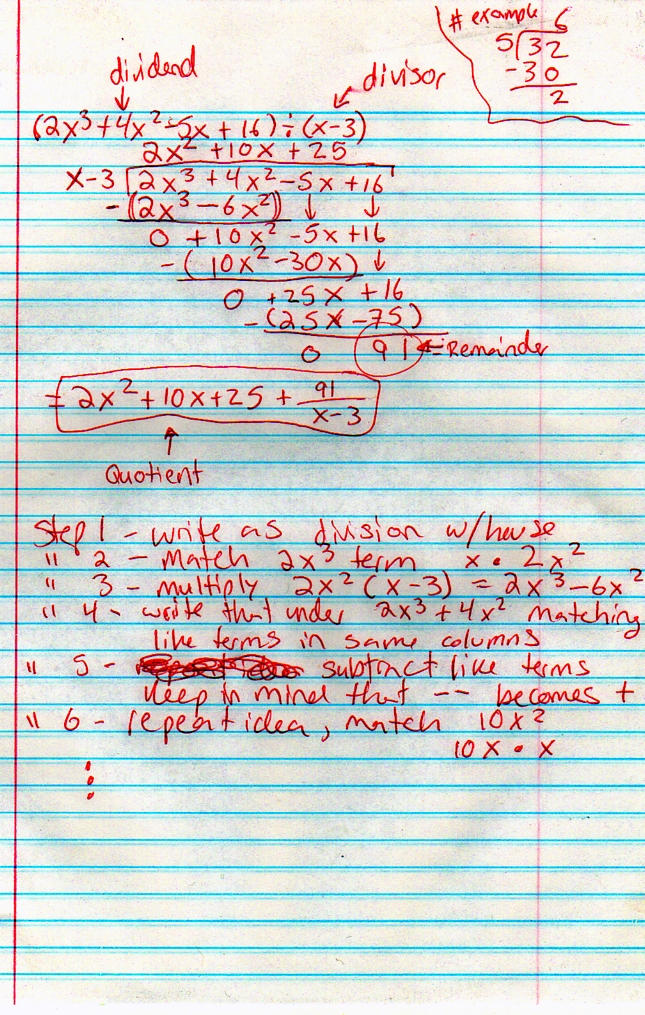 # example
6
5)32
-30
2
dividend
divisor
(2x³+4x²-5x+16)÷(x-3)
2x²+10x+25
x-3)2x³+4x²-5x+16
-(2x³-6x²)
0+10x²-5x+16
-(10x²-30x)
0+25x+16
-(25x-75)
0 91 Remainder
=2x²+10x+25+91/(x-3)
Quotient
Step 1 - write as division w/house
" 2 - Match 2x³ term x • 2x²
" 3 - multiply 2x²(x-3) = 2x³-6x²
" 4 - write that under 2x³+4x² matching
like terms in same columns
" 5 - subtract like terms
keep in mind that -- becomes +
" 6 - repeat idea, match 10x²
10x • x
⋮